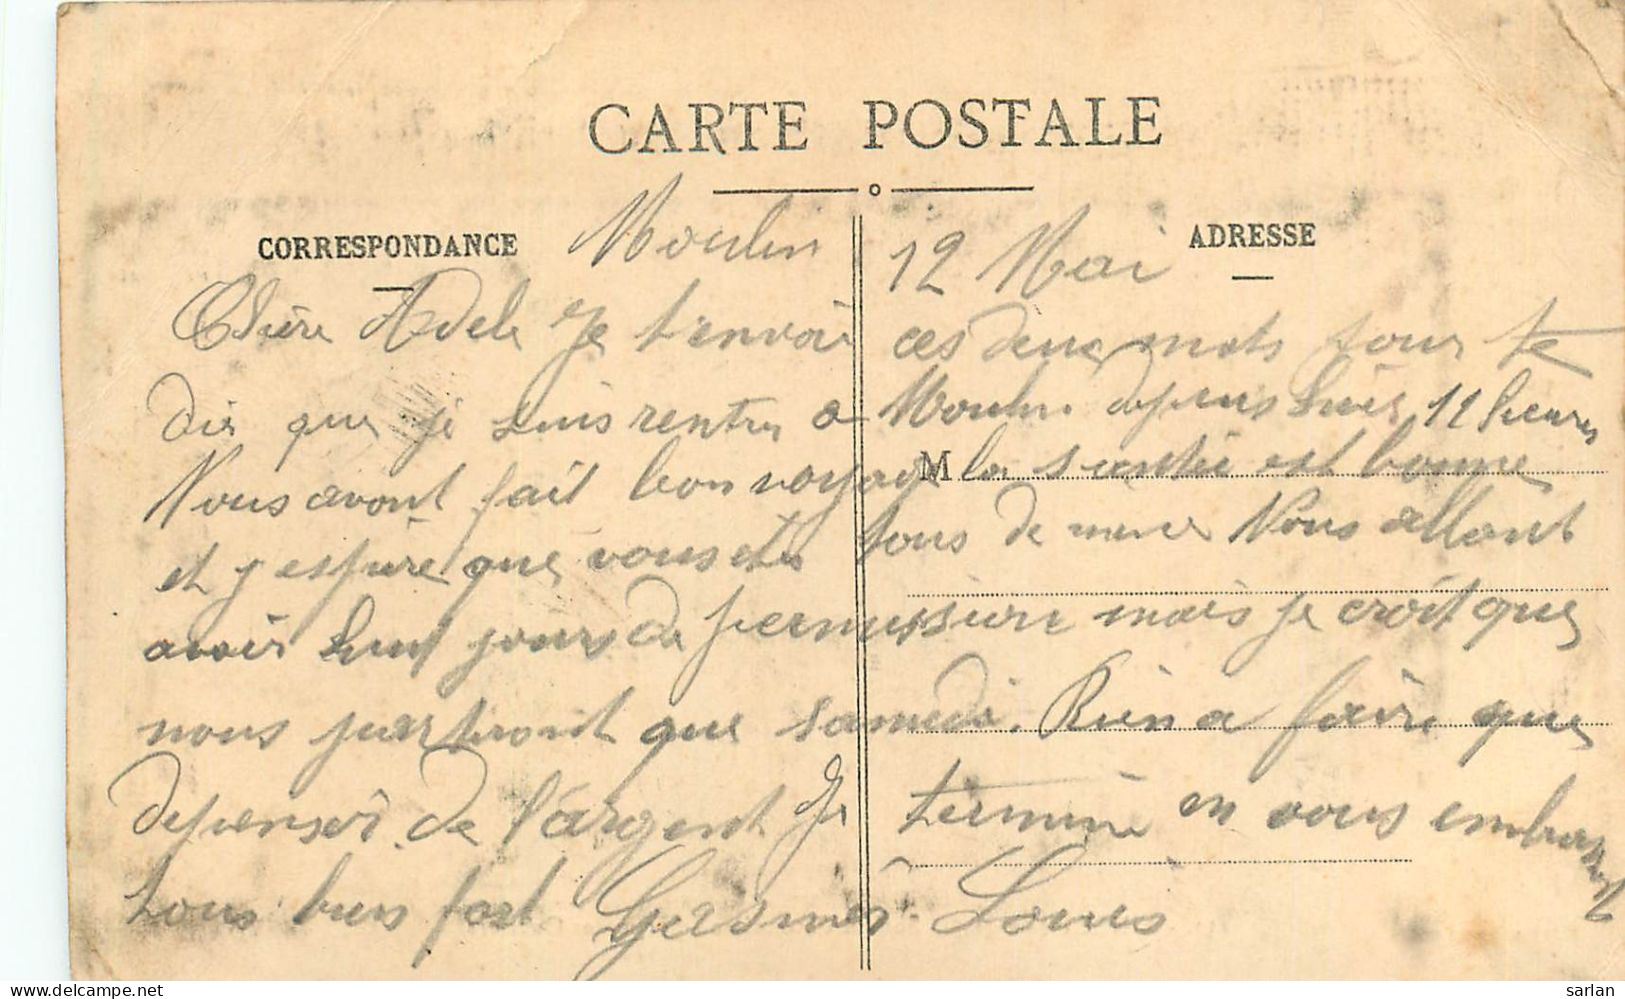 CARTE POSTALE
CORRESPONDANCE
ADRESSE
Moulin 12 Mai
Chère Adele Je t'envoie ces deux mots pour te
dire que je suis rentre a Moulin depuis hier 11 heures
Nous avont fait bon voyage la santé est bonne
M
et j espere que vous etes tous de meme Nous allont
avoir huit jours de permission mais je croit que
nous partiront que samedi. Rien a faire que
depenser de l'argent Je termine en vous embrassant
tous bien fort Louis
sarlan